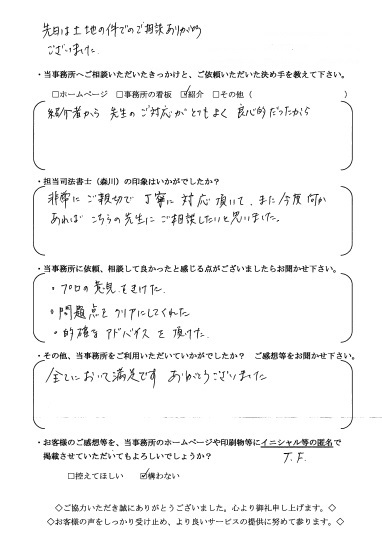 先日は土地の件でのご相談ありがとう
ございました。
・当事務所へご相談いただいたきっかけと、ご依頼いただいた決め手を教えて下さい。
□ホームページ □事務所の看板 ☑紹介 □その他（ ）
紹介者から 先生のご対応がとてもよく 良心的だったから
・担当司法書士（森川）の印象はいかがでしたか？
非常に ご親切で 丁寧に 対応頂いて、また今度何か
あれば こちらの先生に ご相談したいと思いました。
・当事務所に依頼、相談して良かったと感じる点がございましたらお聞かせ下さい。
・プロの意見をきけた
・問題点をクリアにしてくれた
・的確なアドバイスを頂けた
・その他、当事務所をご利用いただいていかがでしたか？ ご感想等をお聞かせ下さい。
全てにおいて満足です ありがとうございました
・お客様のご感想等を、当事務所のホームページや印刷物等にイニシャル等の匿名で
掲載させていただいてもよろしいでしょうか？ T.F.
□控えてほしい ☑構わない
◇ご協力いただき誠にありがとうございました。心より御礼申し上げます。◇
◇お客様の声をしっかり受け止め、より良いサービスの提供に努めて参ります。◇